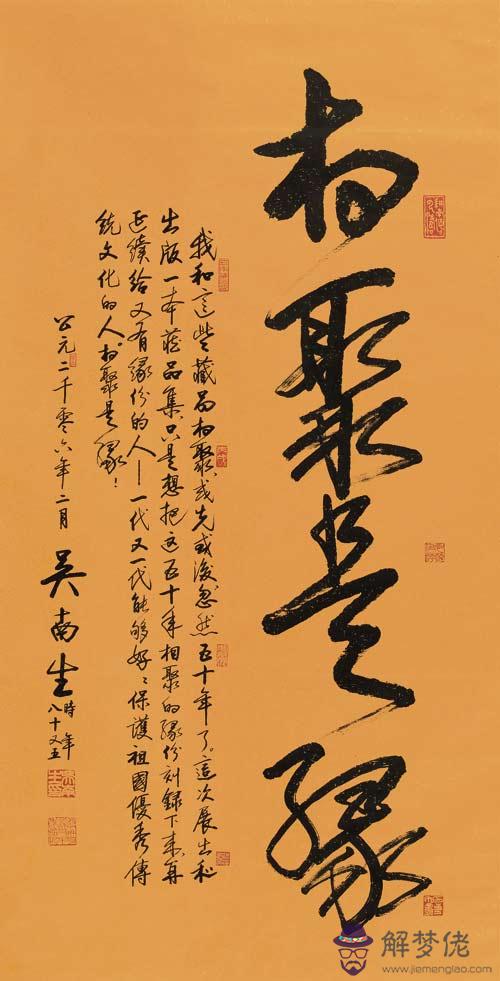 相聚是緣
我和這些藏品相聚或先或後忽然五十年了。這次展出和
出版一本藏品集只是想把这五十年相聚的緣份刻録下来再
延續给又有緣份的人——一代又一代能够好好保護祖國優秀傳
統文化的人相聚是緣！
公元二千零六年二月
吴南生
時年
八十又五
解梦佬
www.jiemenglao.com